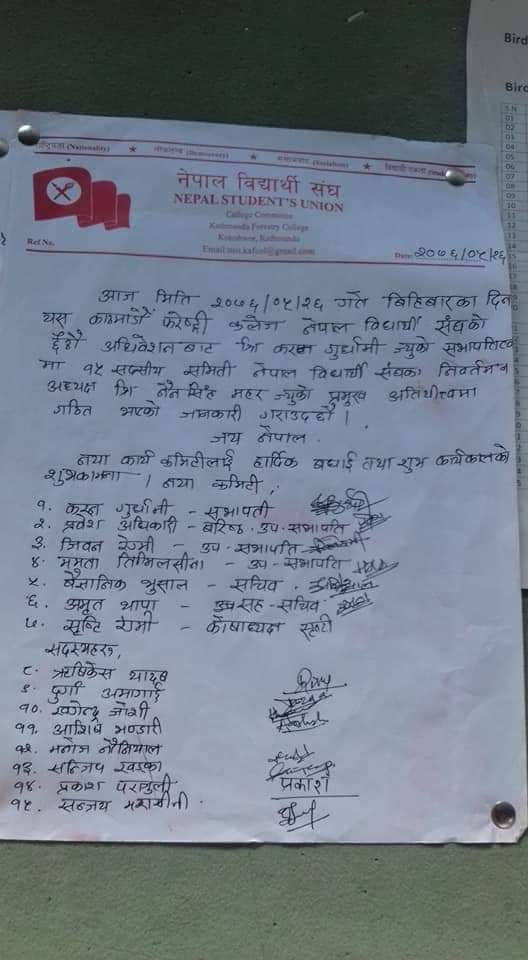 राष्ट्रियता (Nationality) ★ प्रजातन्त्र (Democracy) ★ समाजवाद (Socialism) ★ विद्यार्थी एकता
Bird
Bird
S.N
01
02
03
04
05
06
07
08
09
10
11
नेपाल विद्यार्थी संघ
NEPAL STUDENT'S UNION
College Committee
Kathmandu Forestry College
Koteshwor, Kathmandu
Email:nsu.kafcol@gmail.com
Ref No.
Date: २०७६/०५/२६
आज मिति २०७६/०५/२६ गते बिहिबारका दिन
यस काठमाडौं फरेष्ट्री कलेज नेपाल विद्यार्थी संघको
अधिवेशन बाट श्रि करन गुर्धामी ज्युको सभापतित्व
मा १५ सदस्यीय समिती नेपाल विद्यार्थी संघका निवर्तमान
अध्यक्ष श्रि नैन सिंह महर ज्युको प्रमुख अतिथीत्वमा
गठित भएको जानकारी गराउदछौ ।
जय नेपाल .
नया कार्य कमिटीलाई हार्दिक बधाई तथा शुभ कार्यकालको
शुभकामना । नया कमिटी ;
१. करन गुर्धामी - सभापती
२. प्रवेश अधिकारी - बरिष्ठ उप-सभापति
३. जिवन रेग्मी - उप-सभापति
४. ममता तिमिलसीना - उप-सभापति
५. बैसालिक भुसाल - सचिव
६. अमृत थापा - सह-सचिव
७. सृष्टि रेग्मी - कोषाध्यक्ष
सदस्यहरु,
८. ऋषिकेस यादव
९. दुर्गा अमागाई
१०. खगेन्द्र जोशी
११. आशिष भण्डारी
१२. मनोज
१३. सन्जिप खड्का
१४. प्रकाश पराजुली प्रकाश
१५. सन्जय